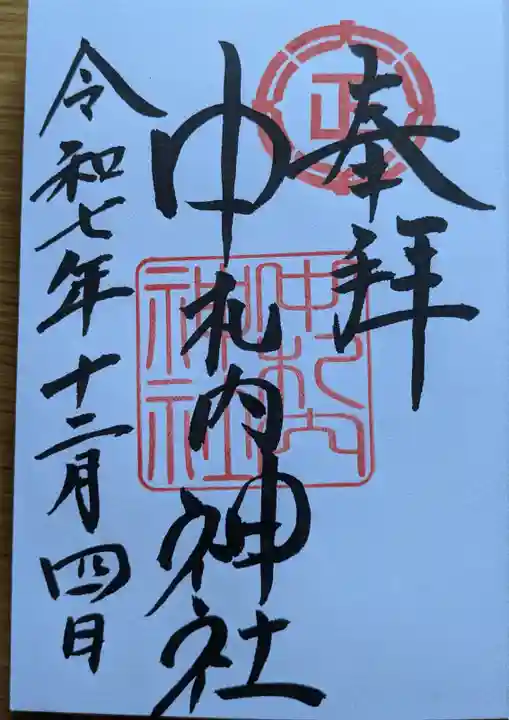 奉拝
中札内神社
令和七年十二月四日
正
中札内
神社